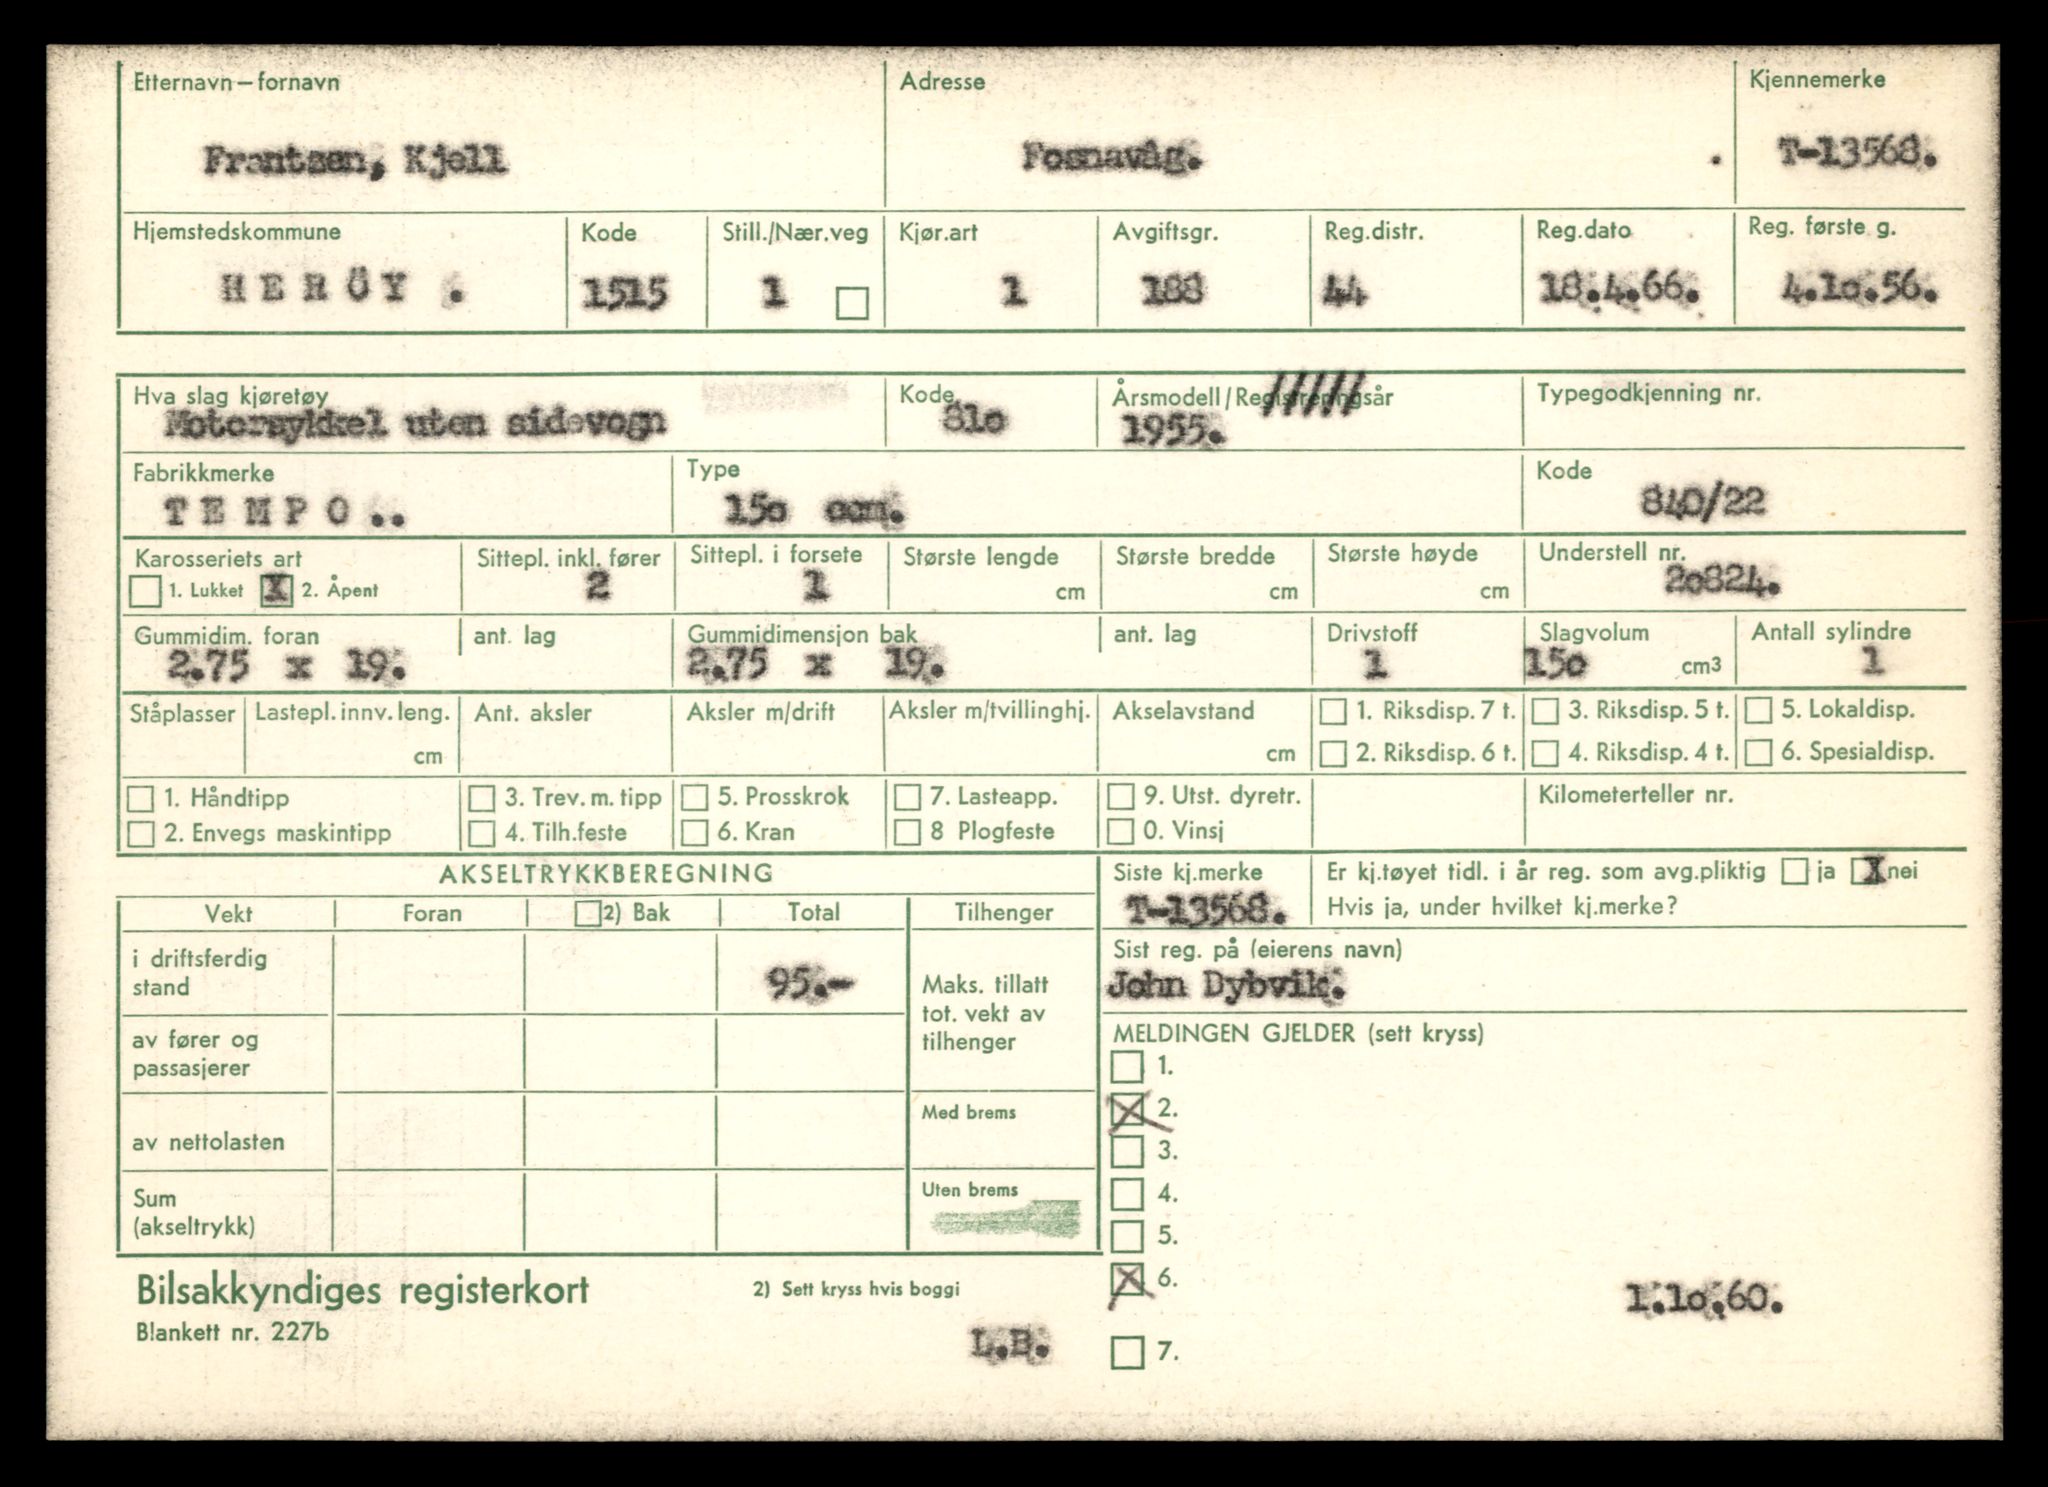 Etternavn – fornavn Adresse Kjennemerke
Frantzen, Kjell Fosnavåg. . T-13568.
Hjemstedskommune Kode Still./Nær.veg Kjør.art Avgiftsgr. Reg.distr. Reg.dato Reg. første g.
HERÖY . 1515 1 1 188 44 18.4.66. 4.1o.56.
Hva slag kjøretøy Kode Årsmodell/Registreringsår Typegodkjenning nr.
Motorsykkel uten sidevogn 81o 1955.
Fabrikkmerke Type Kode
TEMPO.. 15o ccm. 840/22
Karosseriets art Sittepl. inkl. fører Sittepl. i forsete Største lengde Største bredde Største høyde Understell nr.
1. Lukket X 2. Åpent 2 1 cm cm cm 2o824.
Gummidim. foran ant. lag Gummidimensjon bak ant. lag Drivstoff Slagvolum Antall sylindre
2.75 x 19. 2.75 x 19. 1 15o cm3 1
Ståplasser Lastepl. innv. leng. Ant. aksler Aksler m/drift Aksler m/tvillinghj. Akselavstand 1. Riksdisp. 7 t. 3. Riksdisp. 5 t. 5. Lokaldisp.
cm cm 2. Riksdisp. 6 t. 4. Riksdisp. 4 t. 6. Spesialdisp.
1. Håndtipp 3. Trev. m. tipp 5. Prosskrok 7. Lasteapp. 9. Utst. dyretr. Kilometerteller nr.
2. Envegs maskintipp 4. Tilh.feste 6. Kran 8 Plogfeste 0. Vinsj
AKSELTRYKKBEREGNING Siste kj.merke Er kj.tøyet tidl. i år reg. som avg.pliktig ja X nei
Vekt Foran 2) Bak Total Tilhenger T-13568. Hvis ja, under hvilket kj.merke?
i driftsferdig stand 95.- Maks. tillatt tot. vekt av tilhenger Sist reg. på (eierens navn)
John Dybvik.
av fører og passasjerer MELDINGEN GJELDER (sett kryss)
1.
av nettolasten Med brems X 2.
3.
Sum (akseltrykk) Uten brems 4.
5.
Bilsakkyndiges registerkort 2) Sett kryss hvis boggi X 6. 1.1o.60.
Blankett nr. 227b L.B. 7.